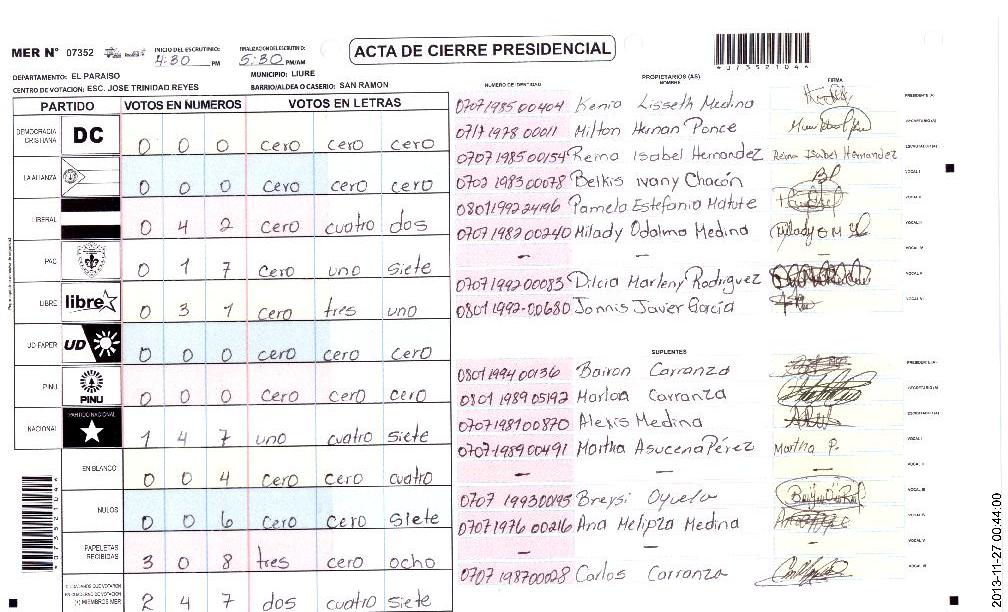 MER N° 07352
INICIO DEL ESCRUTINIO: 4:30 PM
FINALIZACION DEL ESCRUTINIO: 5:30 PM/AM
ACTA DE CIERRE PRESIDENCIAL
*07352104*
DEPARTAMENTO: EL PARAISO
MUNICIPIO: LIURE
CENTRO DE VOTACION: ESC. JOSE TRINIDAD REYES
BARRIO/ALDEA O CASERIO: SAN RAMON
PARTIDO VOTOS EN NUMEROS VOTOS EN LETRAS
DEMOCRACIA CRISTIANA DC 0 0 0 cero cero cero
LA ALIANZA 0 0 0 cero cero cero
LIBERAL 0 4 2 cero cuatro dos
PAC 0 1 7 cero uno siete
LIBRE libre 0 3 1 cero tres uno
UD-FAPER UD 0 0 0 cero cero cero
PINU PINU 0 0 0 cero cero cero
NACIONAL PARTIDO NACIONAL 1 4 7 uno cuatro siete
EN BLANCO 0 0 4 cero cero cuatro
NULOS 0 0 6 cero cero siete
PAPELETAS RECIBIDAS 3 0 8 tres cero ocho
CIUDADANOS QUE VOTARON
(+) MIEMBROS MER 2 4 7 dos cuatro siete
NUMERO DE IDENTIDAD
PROPIETARIOS (AS)
NOMBRE
FIRMA
0707 1985 00404 Kenia Lisseth Medina PRESIDENTE (A)
0717 1978 00011 Milton Hernan Ponce SECRETARIO (A)
0707 1985 00154 Reina Isabel Hernandez Reina Isabel Hernandez ESCRUTADOR (A)
0702 1983 00078 Belkis Ivany Chacón VOCAL I
0801 1992 24196 Pamela Estefania Matute VOCAL II
0707 1982 00240 Milady Odalma Medina VOCAL III
— — — VOCAL IV
0707 1992 00083 Dilcia Marleny Rodriguez VOCAL V
0801 1992-00680 Jonnis Javier García VOCAL VI
SUPLENTES
0801 1994 00136 Bairon Carranza PRESIDENTE (A)
0801 1989 05192 Marlon Carranza SECRETARIO (A)
0707 1981 00870 Alexis Medina ESCRUTADOR (A)
0707 1989 00491 Martha Asucena Pérez Martha P. VOCAL I
— — — VOCAL II
0707 1993 00195 Breysi Oyuela VOCAL III
0707 1976 00216 Ana Medina VOCAL IV
— — — VOCAL V
0707 1987 00028 Carlos Carranza VOCAL VI
2013-11-27 00:44:00